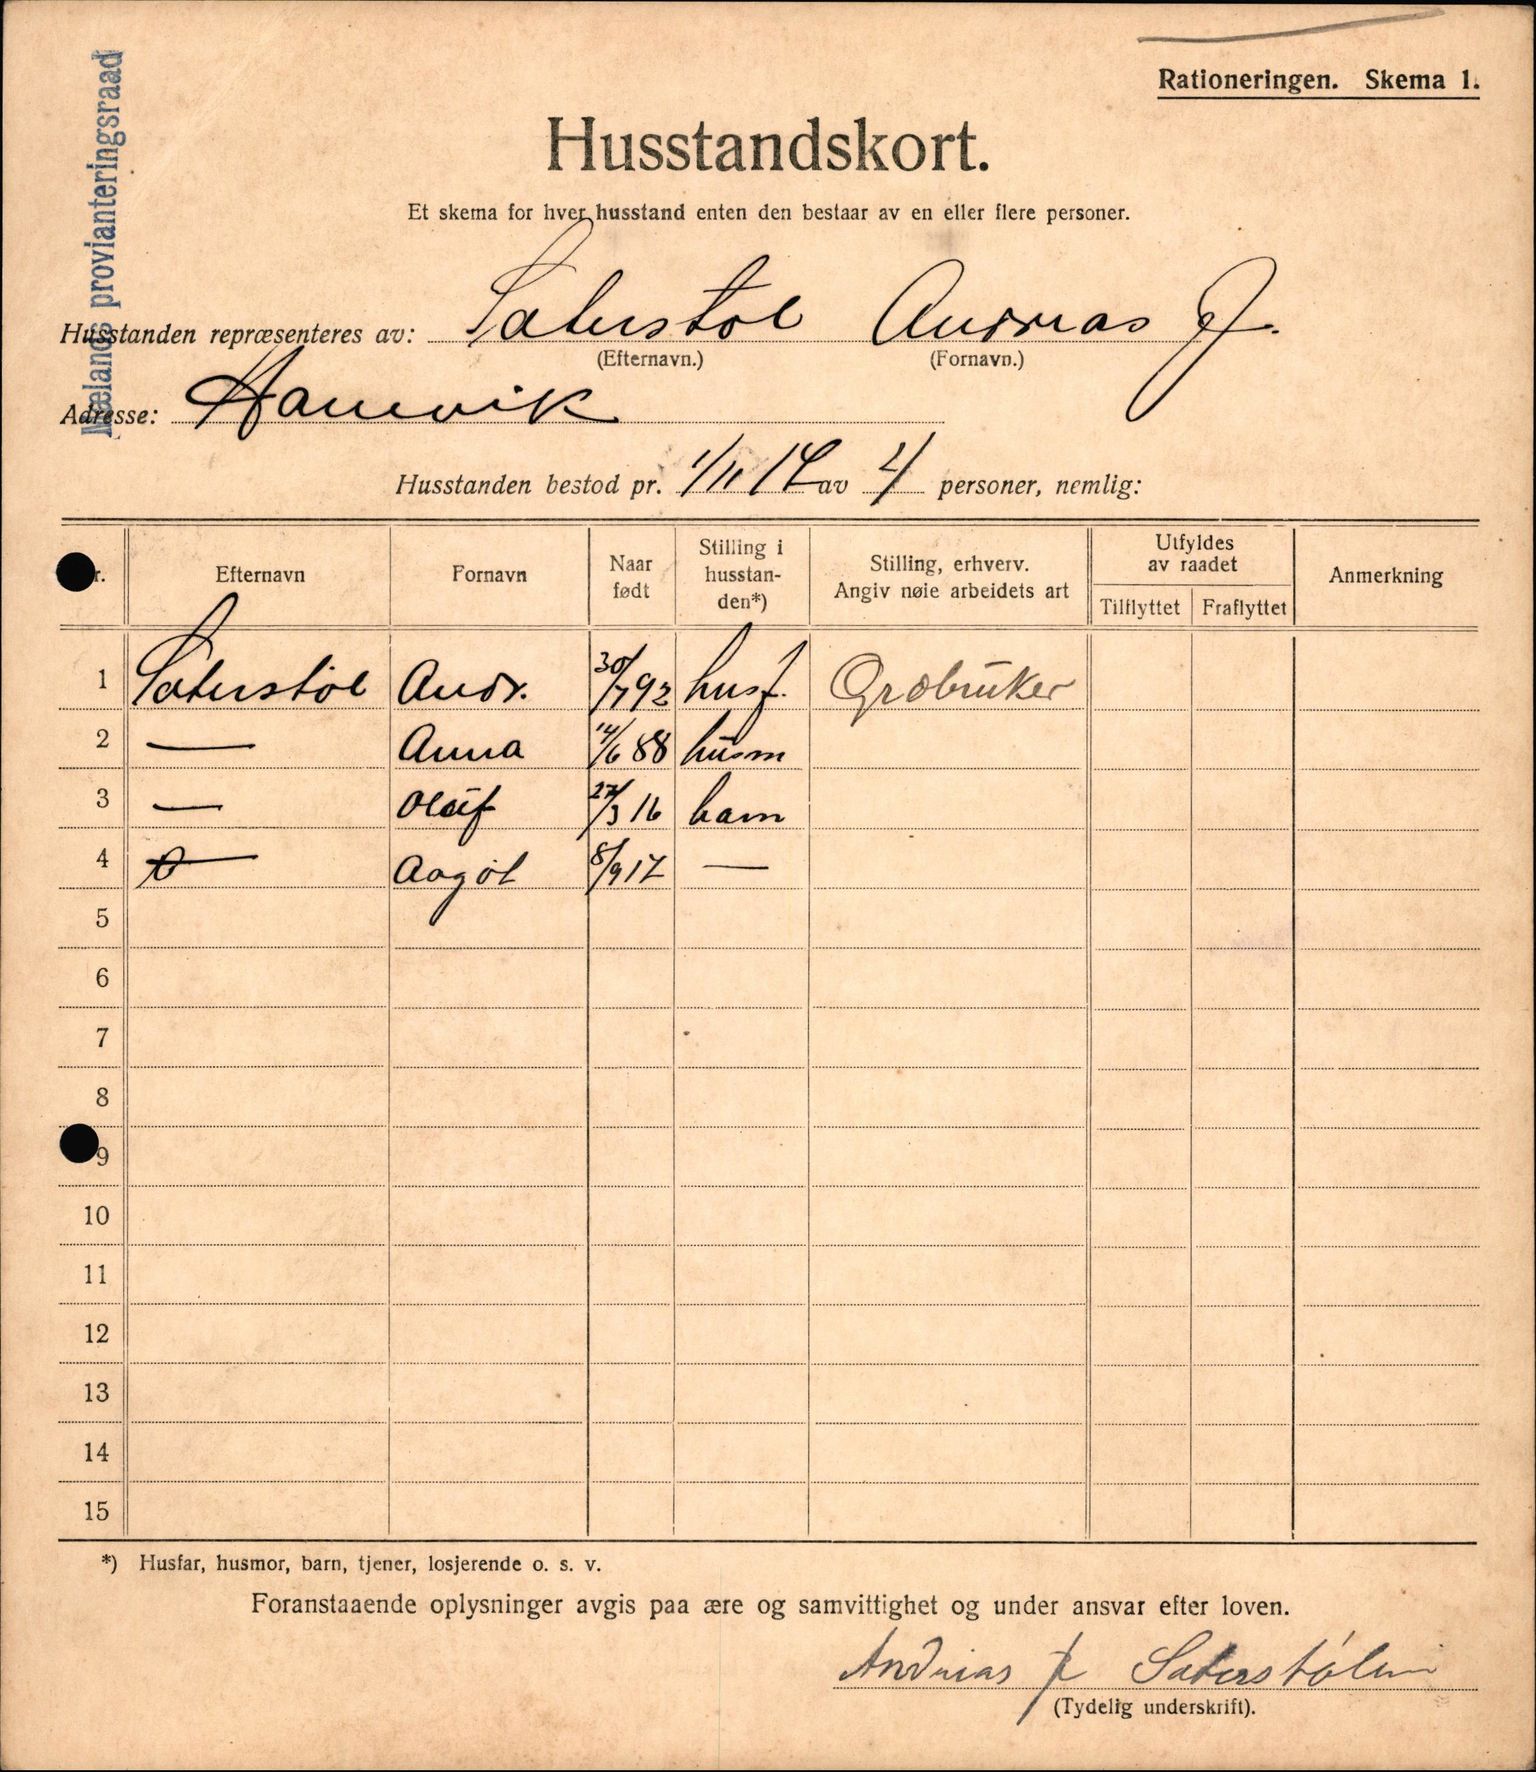 Mælands provianteringsraad
Rationeringen. Skema 1.
Husstandskort.
Et skema for hver husstand enten den bestaar av en eller flere personer.
Husstanden repræsenteres av: Saterstøl Andreas J.
(Efternavn.) (Fornavn.)
Adresse: Hamrvik
Husstanden bestod pr. 1/11 17 av 4 personer, nemlig:
Efternavn Fornavn Naar født Stilling i husstan-den*) Stilling, erhverv. Angiv nøie arbeidets art Utfyldes av raadet Tilflyttet Fraflyttet Anmerkning
1 Saterstøl Andr. 30/7 92 husf. Grobruker
2 — Anna 14/6 88 husm
3 — Oluf 27/3 16 barn
4 — Aagot 8/9 17 —
5
6
7
8
9
10
11
12
13
14
15
*) Husfar, husmor, barn, tjener, losjerende o. s. v.
Foranstaaende oplysninger avgis paa ære og samvittighet og under ansvar efter loven.
Andreas J Saterstølen
(Tydelig underskrift).